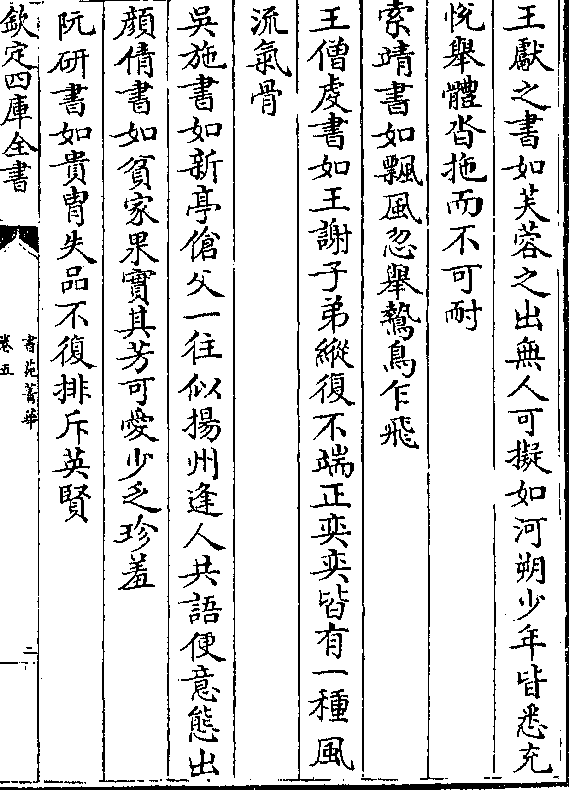 王獻之書如芙蓉之出無人可擬如河朔少年皆悉充
悅舉體沓拖而不可耐
索靖書如飄風忽舉鷙鳥乍飛
王僧虔書如王謝子弟縱復不端正奕奕皆有一種風
流氣骨
吳施書如新亭傖父一往似揚州逢人共語便意態出
顔倩書如貧家果實其芳可愛少乏珍羞
阮研書如貴胄失品不復排斥英賢
欽定四庫全書
書苑菁華
卷五
二